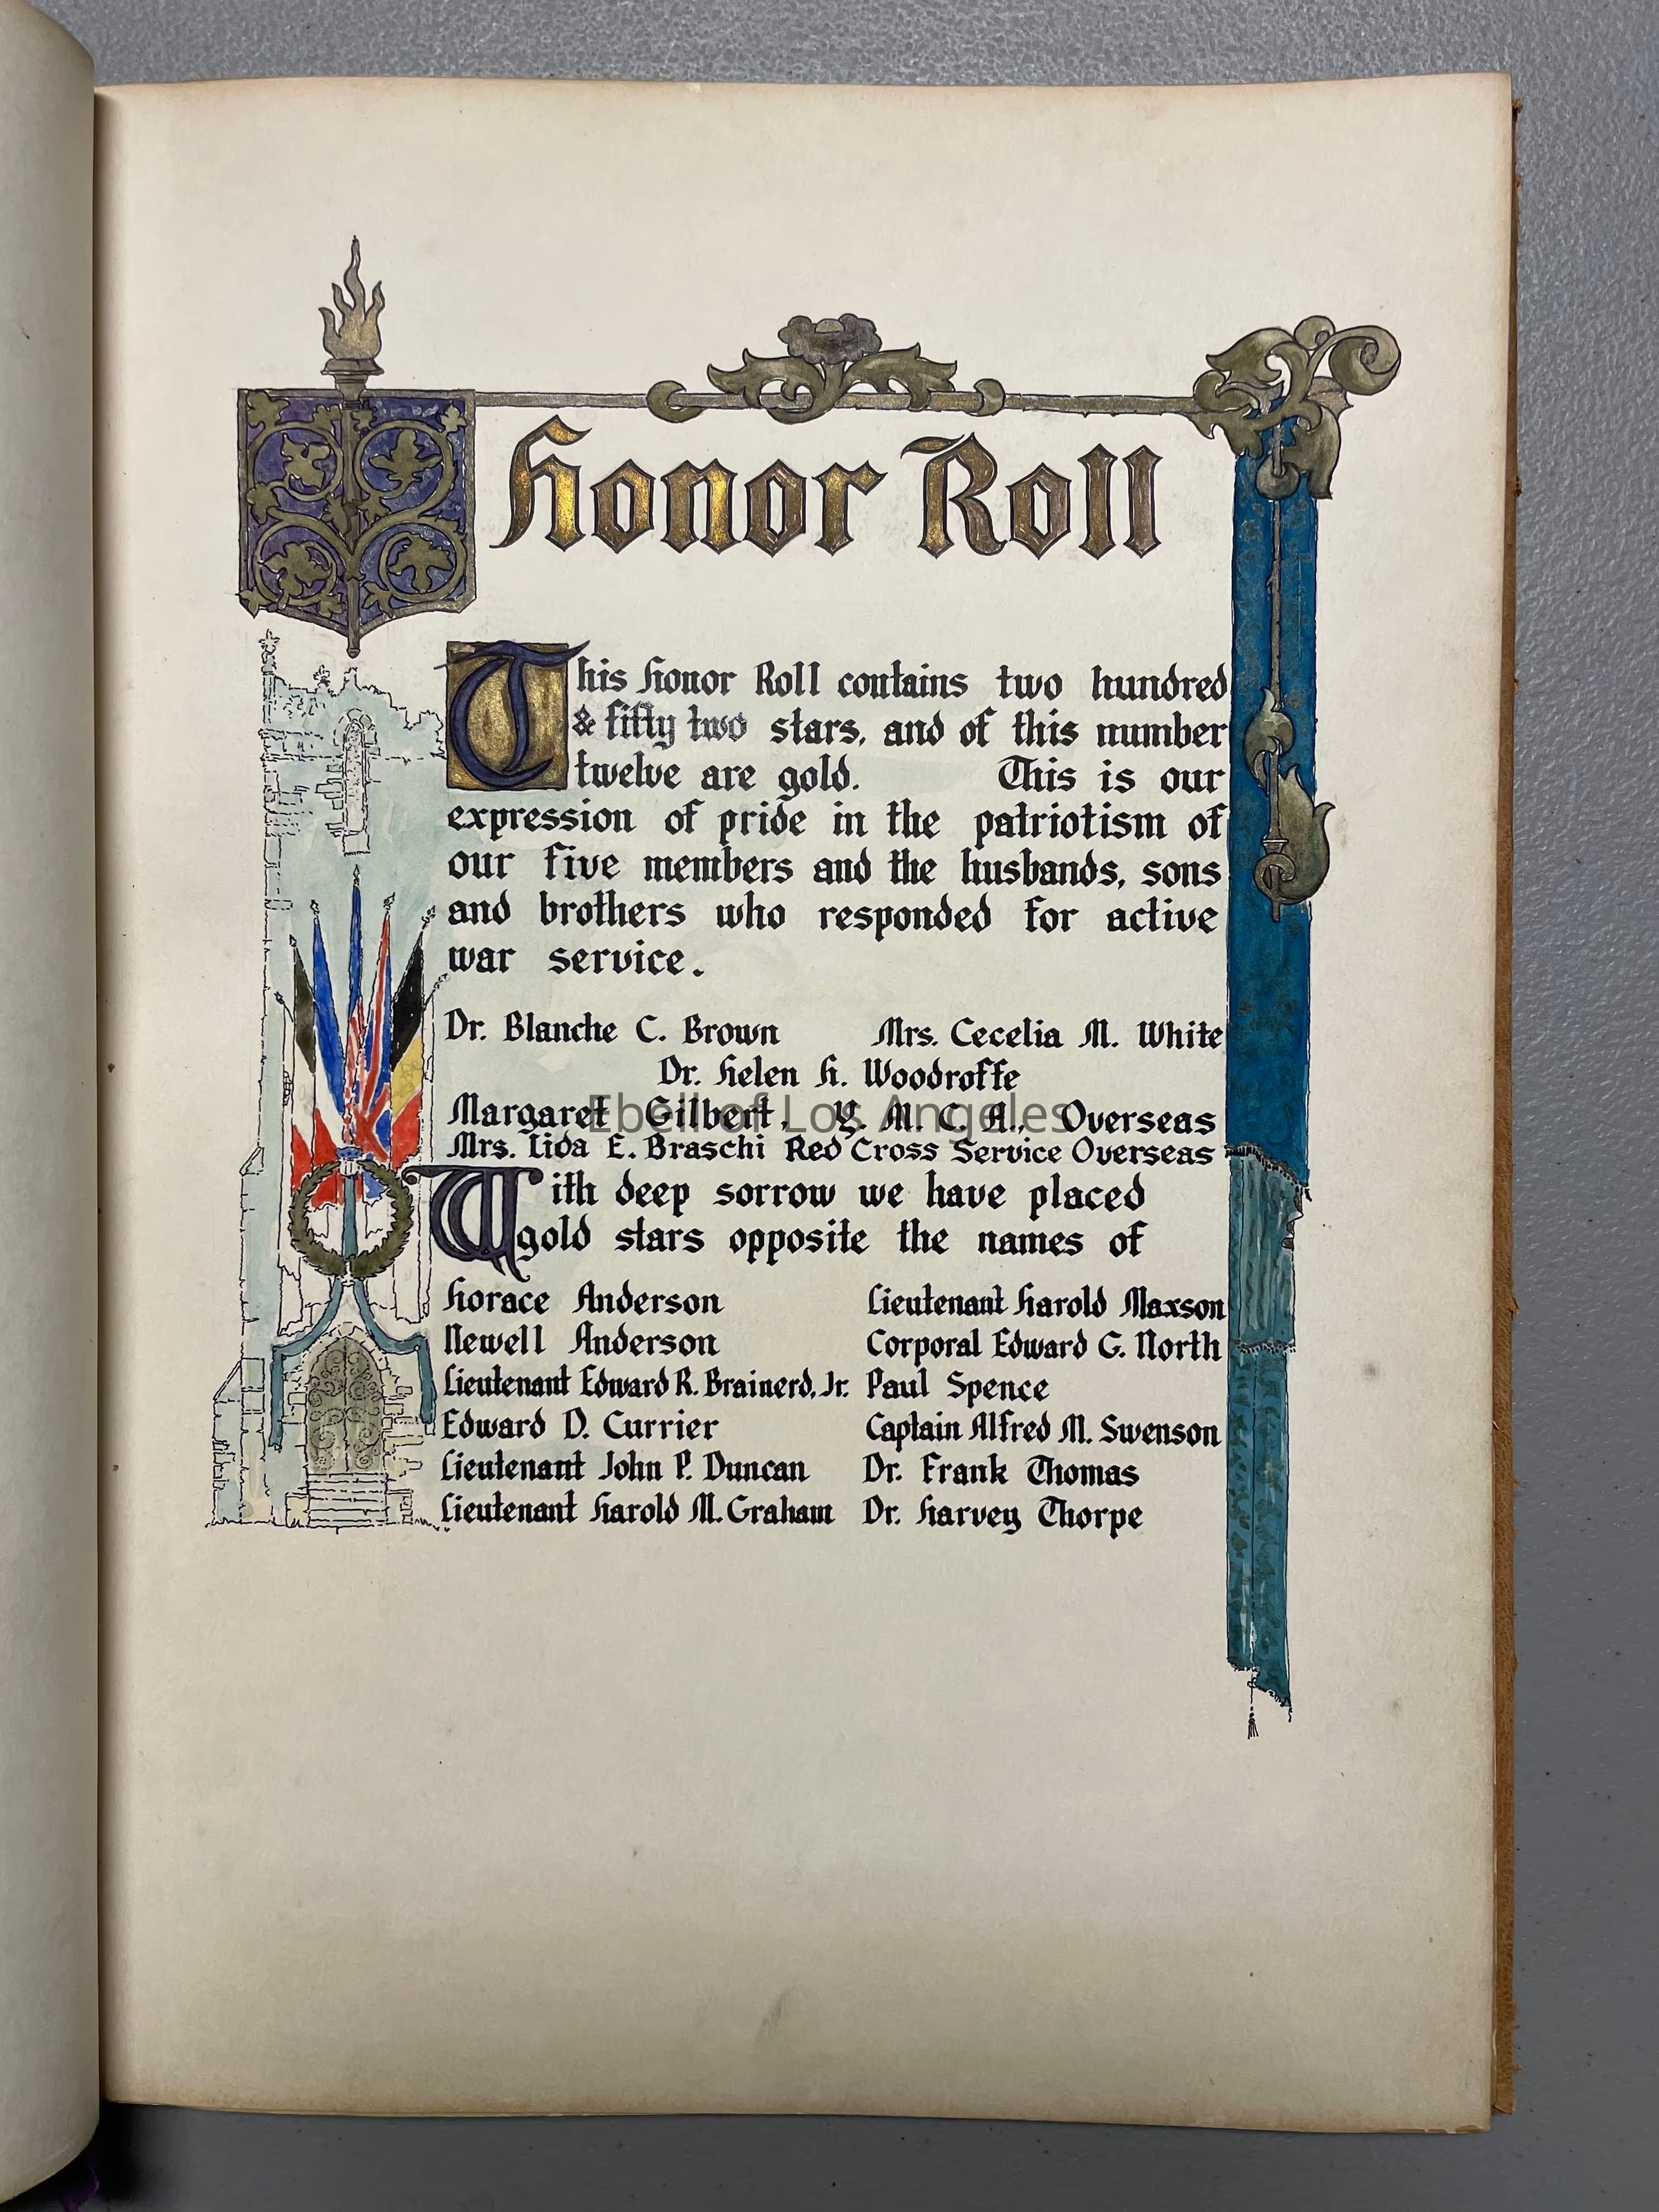 Honor Roll
This Honor Roll contains two hundred
& fifty two stars, and of this number
twelve are gold. This is our
expression of pride in the patriotism of
our five members and the husbands, sons
and brothers who responded for active
war service.
Dr. Blanche C. Brown Mrs. Cecelia M. White
Dr. Helen H. Woodroffe
Margaret Gilbert, Y. M. C. A., Overseas
Ebell of Los Angeles
Mrs. Lida E. Braschi Red Cross Service Overseas
With deep sorrow we have placed
gold stars opposite the names of
Horace Anderson Lieutenant Harold Maxson
Newell Anderson Corporal Edward G. North
Lieutenant Edward R. Brainerd, Jr. Paul Spence
Edward D. Currier Captain Alfred M. Swenson
Lieutenant John P. Duncan Dr. Frank Thomas
Lieutenant Harold M. Graham Dr. Harvey Thorpe